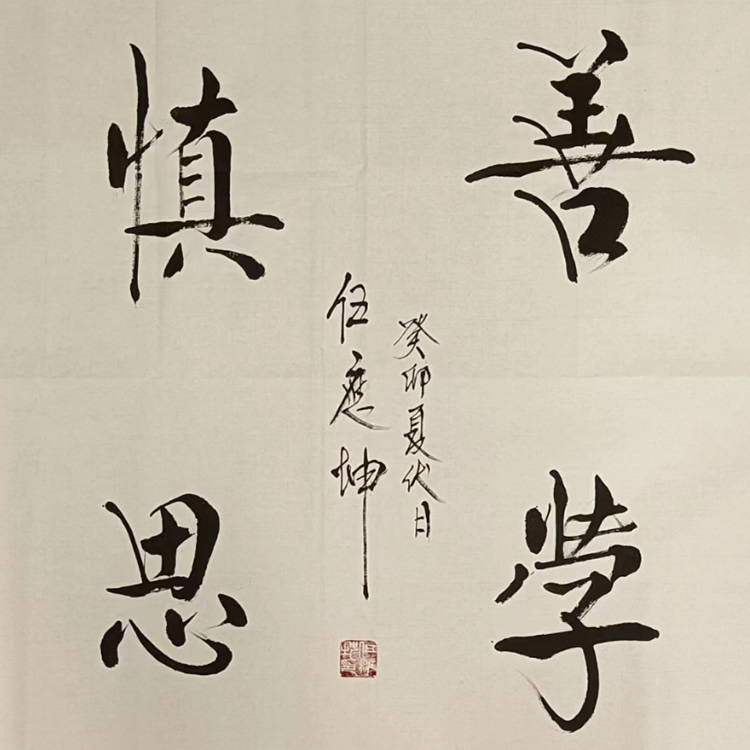 善學
慎思
癸卯夏伏日
任應坤